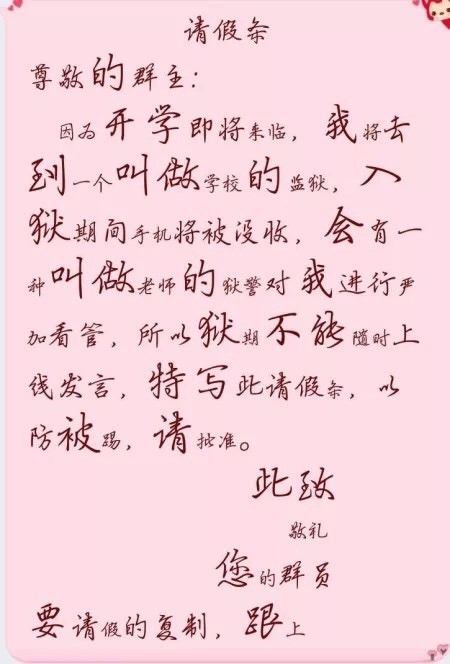 请假条
尊敬的群主：
因为开学即将来临，我将去
到一个叫做学校的监狱，入
狱期间手机将被没收，会有一
种叫做老师的狱警对我进行严
加看管，所以狱期不能随时上
线发言，特写此请假条，以
防被踢，请批准。
此致
敬礼
您的群员
要请假的复制，跟上